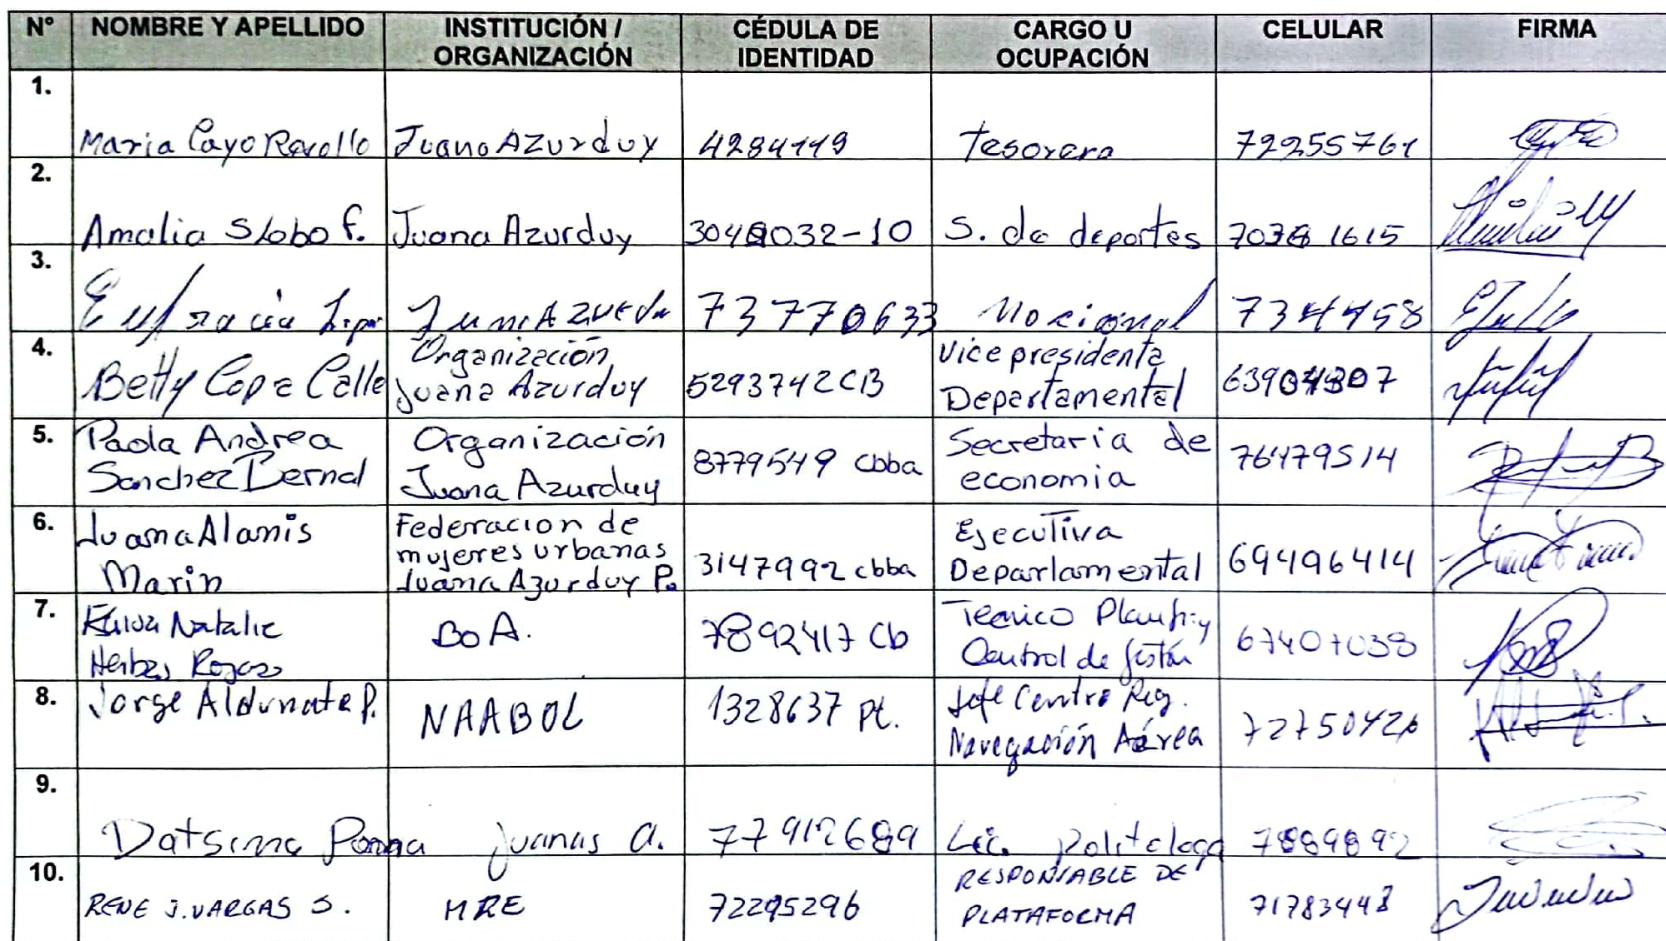 N° NOMBRE Y APELLIDO INSTITUCIÓN / ORGANIZACIÓN CÉDULA DE IDENTIDAD CARGO U OCUPACIÓN CELULAR FIRMA
1. Maria Cayo Revollo Juana AZurduy 4284119 Tesorera 72255761
2. Amalia S Lobo F. Juana Azurduy 3048032-10 S. de deportes 70381615
3. Eufracia 73770633 Nacional 7344458
4. Betty Copa Calle Organización Juana Azurduy 5293742 CB Vicepresidenta Departamental
5. Paola Andrea Sanchez Bernal Organización Juana Azurduy 8779549 cbba Secretaria de economia 76479514
6. Juana Alanis Marin Federacion de mujeres urbanas Juana Azurduy P. 3147992 cbba Ejecutiva Departamental 69496414
7. Natalie Rojas BoA. 7892417 Cb Tecnico Planif. y Control de Gestión 67407038
8. Jorge Aldunate P. NAABOL 1328637 Pt. Jefe Centro Reg. Navegación Aérea
9. Poma Juanas A. 77912689 Lic. Politologa
10. RENE J. VARGAS S. MRE 72295296 RESPONSABLE DE PLATAFORMA 71783448